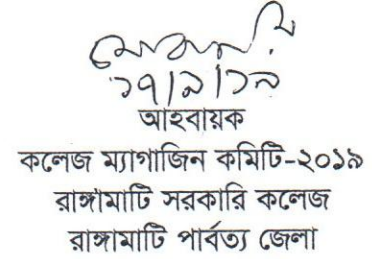 ১৭/৯/১৯
আহবায়ক
কলেজ ম্যাগাজিন কমিটি-২০১৯
রাঙ্গামাটি সরকারি কলেজ
রাঙ্গামাটি পার্বত্য জেলা